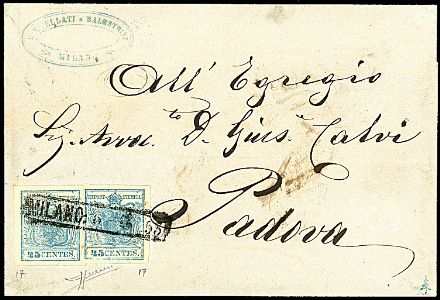 BALESTR
MILANO
All' Egregio
Sig. Avvoc.to D. Gius.e Calvi
Padova
MILANO
45 CENTES. 45 CENTES.
17 17